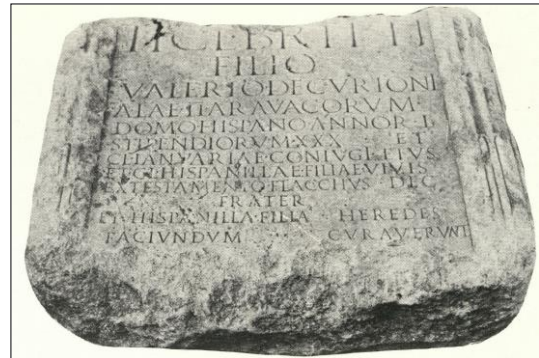 TI·CL·BRITTI
FILIO
VALERIO DECVRIONI
ALAE·II·ARAVACORVM·
DOMO·HISPANO·ANNOR·L
STIPENDIORVM·XXX ET
CL·IANVARIAE·CONIVGI·EIVS
ET·CL·HISPANILLAE·FILIAE·VIVIS
EX·TESTAMENTO·FLACCHVS·DEC
FRATER
ET·HISPANILLA·FILIA HEREDES
FACIVNDVM CVRAVERVNT